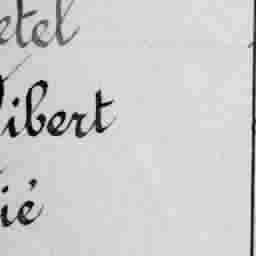 etel
libert
ié